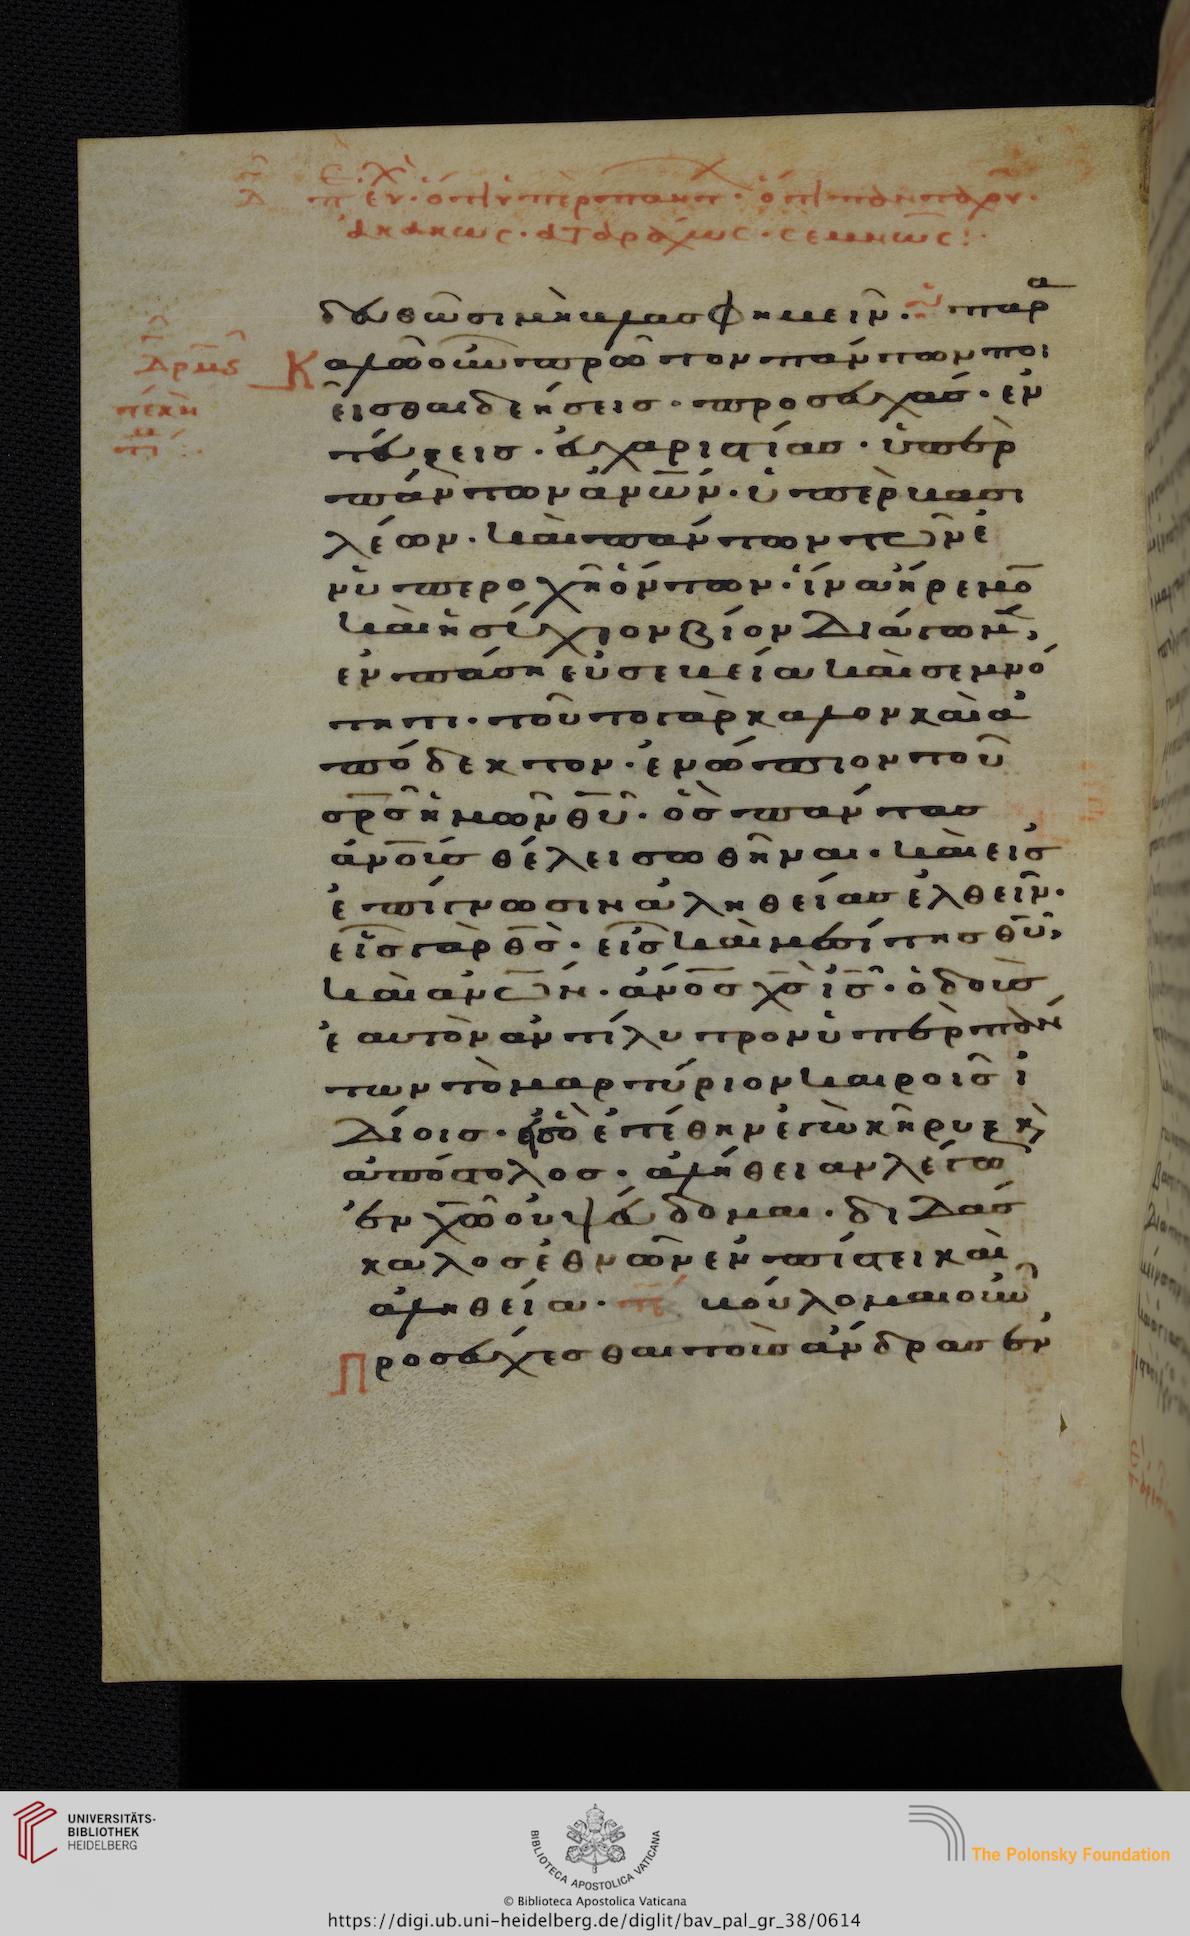 δευθῶσι μὴ βλασφημεῖν. παρα
Καλῶ οὖν πρῶτον πάντων ποι
εῖσθαι δεήσεις· προσευχάς· ἐν
τεύξεις· εὐχαριστίας· ὑπὲρ
πάντων ἀνων· ὑπὲρ βασι
λέων· καὶ πάντων τῶν ἐ
ν ὑπεροχῆ ὄντων· ἵνα ἤρεμο
καὶ ἡσύχιον βίον διάγωμεν,
ἐν πάση εὐσεβεία καὶ σεμνό
τητι· τοῦτο γὰρ καλὸν καὶ ἀ
πόδεκτον· ἐνώπιον τοῦ
σρς ἡμῶν θυ· ὃς πάντας
ἀνοις θέλει σωθῆναι· καὶ εἰς
ἐπίγνωσιν ἀληθείας ἐλθεῖν·
εἷς γὰρ θς· εἷς καὶ μεσίτης θυ,
καὶ ἀνων· ἀνος χς ις· ὁ δοὺς
ἑαυτὸν ἀντίλυτρον ὑπὲρ πάν
των τὸ μαρτύριον καιροῖς ἰ
δίοις· εἰς ὃ ἐτέθην ἐγὼ κῆρυξ κὶ
ἀπόστολος· ἀλήθειαν λέγω
ἐν χω οὐ ψεύδομαι· διδάς
καλος ἐθνῶν ἐν πίστει καὶ
ἀληθεία· βούλομαι οὖν
Προσεύχεσθαι τοὺς ἄνδρας ἐν
UNIVERSITÄTS-
BIBLIOTHEK
HEIDELBERG
BIBLIOTECA APOSTOLICA VATICANA
The Polonsky Foundation
© Biblioteca Apostolica Vaticana
https://digi.ub.uni-heidelberg.de/diglit/bav_pal_gr_38/0614